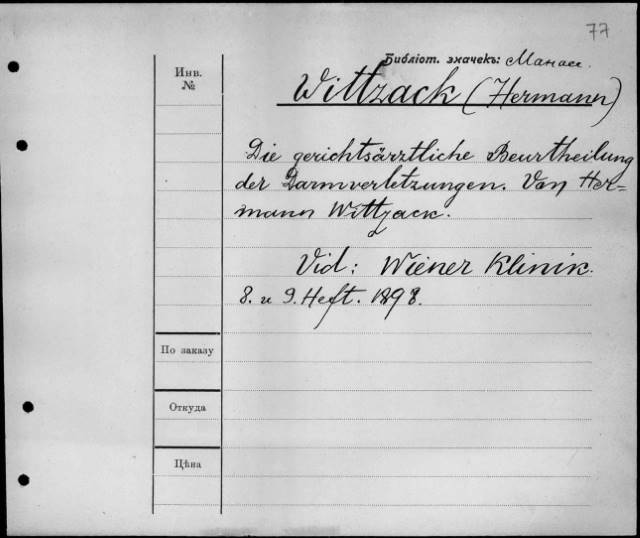 77
Библіот. значекъ: Манас.
Инв.
№
Wittzack (Hermann)
Die gerichtsärztliche Beurtheilung
der Darmverletzungen. Von Her=
mann Wittzack.
Vid: Wiener Klinik.
8. u 9. Heft. 1898.
По заказу
Откуда
Цѣна